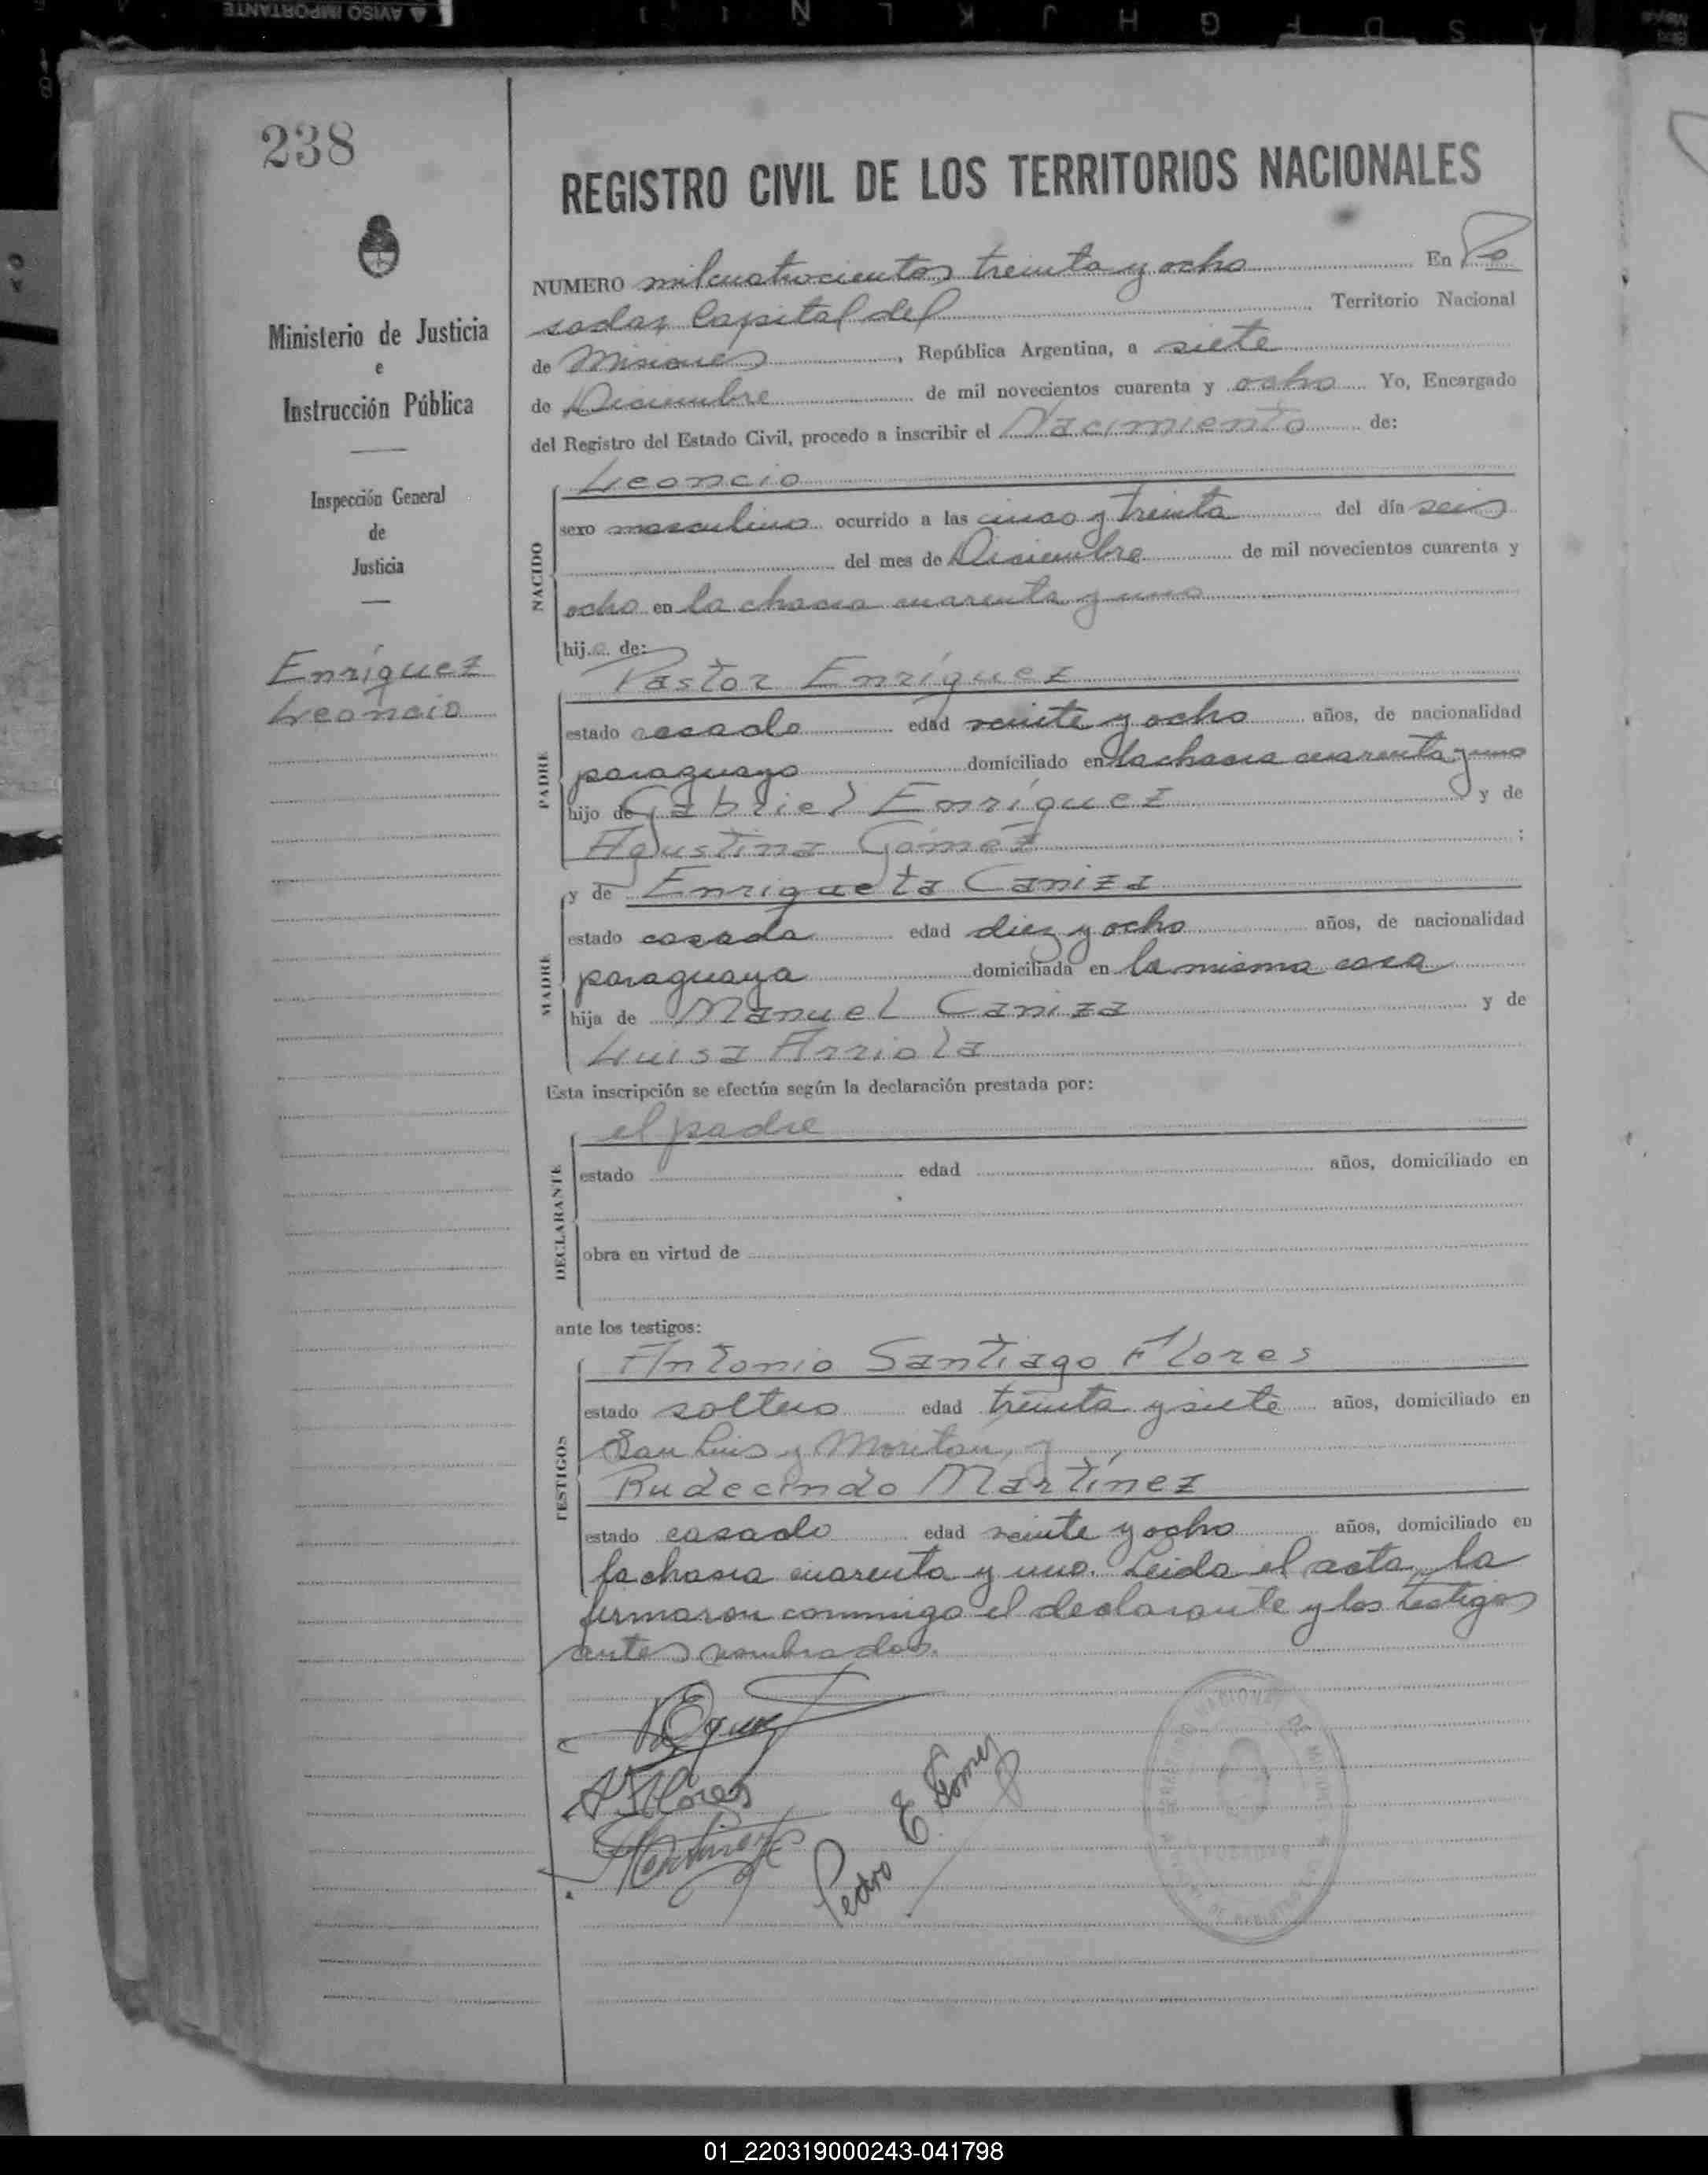 AVISO IMPORTANTE
A S D F G H J K L Ñ
238
REGISTRO CIVIL DE LOS TERRITORIOS NACIONALES
Ministerio de Justicia
e
Instrucción Pública
Inspección General
de
Justicia
Enríquez
Leoncio
NUMERO milcuatrocientos treinta y ocho En Po
sadas Capital del Territorio Nacional
de Misiones, República Argentina, a siete
de Diciembre de mil novecientos cuarenta y ocho Yo, Encargado
del Registro del Estado Civil, procedo a inscribir el Nacimiento de:
NACIDO
Leoncio
sexo masculino ocurrido a las cinco y treinta del día seis
del mes de Diciembre de mil novecientos cuarenta y
ocho en la chacra cuarenta y uno
hijo de:
PADRE
Pastor Enríquez
estado casado edad veinte y ocho años, de nacionalidad
paraguayo domiciliado en la chacra cuarenta y uno
hijo de Gabriel Enríquez y de
Agustina Gómez ;
MADRE
y de Enriqueta Caniza
estado casada edad diez y ocho años, de nacionalidad
paraguaya domiciliada en la misma casa
hija de Manuel Caniza y de
Luisa Arriola
Esta inscripción se efectúa según la declaración prestada por:
DECLARANTE
el padre
estado edad años, domiciliado en
obra en virtud de
ante los testigos:
TESTIGOS
Antonio Santiago Flores
estado soltero edad treinta y siete años, domiciliado en
San Luis y Moritan, y
Rudecindo Martínez
estado casado edad veinte y ocho años, domiciliado en
la chacra cuarenta y uno. Leida el acta, la
firmaron conmigo el declarante y los testigos
antes nombrados.
A S Flores
Martinez
Pedro E. Gomez
POSADAS
01_220319000243-041798